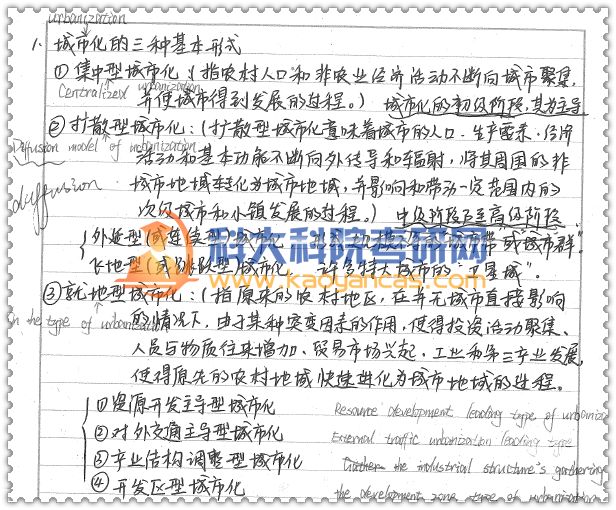 urbanization
1. 城市化的三种基本形式
① 集中型城市化（指农村人口和非农业经济活动不断向城市聚集,
Centralized urbanization
并使城市得到发展的过程。） 城市化的初级阶段,其为主导
② 扩散型城市化：（扩散型城市化意味着城市的人口、生产要素、经济
Diffusion model of urbanization
活动和基本功能不断向外传导和辐射，将其周围的非
城市地域转化为城市地域，并影响和带动一定范围内的
diffusion
次级城市和小镇发展的过程。） 中级阶段至高级阶段
外延型(或连续型)城市化 "城市带"或"城市群"
科大科院考研网
www.kaoyancas.com
飞地型(或跳跃型)城市化 许多特大城市的"卫星城".
③ 就地型城市化：（指原来的农村地区，在并无城市直接影响
In the type of urbanization
的情况下，由于某种突变因素的作用，使得投资活动聚集、
人员与物质往来增加、贸易市场兴起、工业和第三产业发展,
使得原先的农村地域快速进化为城市地域的过程。
① 资源开发主导型城市化 Resource development leading type of urbaniza
② 对外交通主导型城市化 External traffic urbanization leading type
③ 产业结构调整型城市化 the industrial structure's gathering
④ 开发区型城市化 the development zone type of urbanization